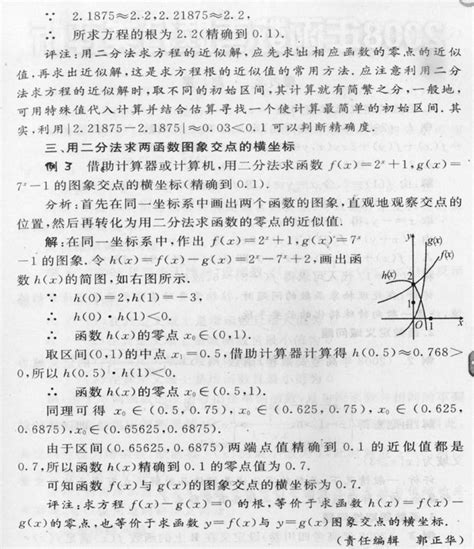 ∵ 2.1875≈2.2,2.21875≈2.2,
∴ 所求方程的根为 2.2(精确到 0.1).
评注:用二分法求方程的近似解,应先求出相应函数的零点的近似
值.再求出近似解,这是求方程根的近似值的常用方法.应注意利用二分
法求方程的近似解时,取不同的初始区间,其计算就有简繁之分,一般地,
可用特殊值代入计算并结合估算寻找一个使计算最简单的初始区间.其
实,利用|2.21875-2.1875|≈0.03<0.1 可以判断精确度.
三、用二分法求两函数图象交点的横坐标
例 3 借助计算器或计算机,用二分法求函数 f(x)=2ˣ+1,g(x)=
7ˣ-1 的图象交点的横坐标(精确到 0.1).
分析:首先在同一坐标系中画出两个函数的图象,直观地观察交点的
位置,然后再转化为用二分法求函数的零点的近似值.
解:在同一坐标系中,作出 f(x)=2ˣ+1,g(x)=7ˣ
-1 的图象.令 h(x)=f(x)-g(x)=2ˣ-7ˣ+2,画出函
数 h(x)的简图,如右图所示.
∵ h(0)=2,h(1)=-3,
∴ h(0)·h(1)<0.
∴ 函数 h(x)的零点 x₀∈(0,1).
y
g(x)
f(x)
h(x)
2
O
1
x
取区间(0,1)的中点 x₁=0.5,借助计算器计算得 h(0.5)≈0.768>
0,所以 h(0.5)·h(1)<0.
∴ 函数 h(x)的零点 x₀∈(0.5,1).
同理可得 x₀∈(0.5,0.75),x₀∈(0.625,0.75),x₀∈(0.625,
0.6875),x₀∈(0.65625,0.6875).
由于区间(0.65625,0.6875)两端点值精确到 0.1 的近似值都是
0.7,所以函数 h(x)精确到 0.1 的零点值为 0.7.
可知函数 f(x)与 g(x)的图象交点的横坐标为 0.7.
评注:求方程 f(x)-g(x)=0 的根,等价于求函数 h(x)=f(x)-
g(x)的零点,也等价于求函数 y=f(x)与 y=g(x)图象交点的横坐标.
(责任编辑 郭正华)